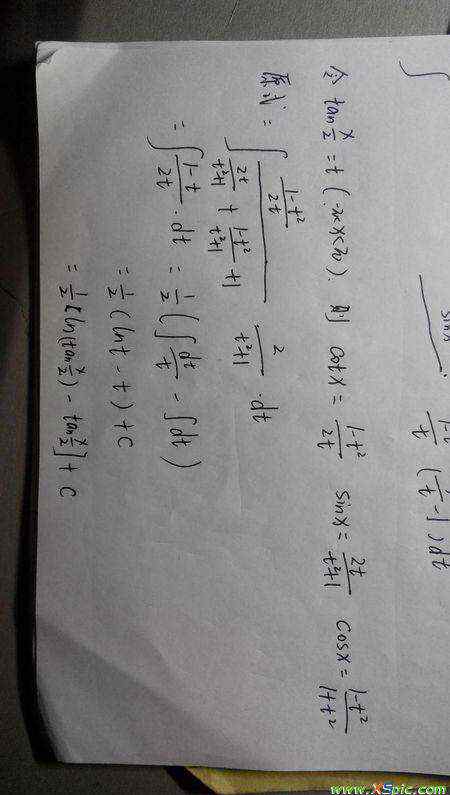 ∫
sinx
1-t / t (1/t - 1) dt
令 tan x/2 = t (-π<x<π). 则 cotx = (1-t²)/(2t) sinx = 2t/(t²+1) cosx = (1-t²)/(1+t²)
原式 = ∫ ((1-t²)/(2t)) / (2t/(t²+1) + (1-t²)/(t²+1) + 1) · 2/(t²+1) · dt
= ∫ (1-t)/(2t) · dt = 1/2 (∫ dt/t - ∫ dt)
= 1/2 (lnt - t) + C
= 1/2 [ln(tan x/2) - tan x/2] + C
www.XSpic.com